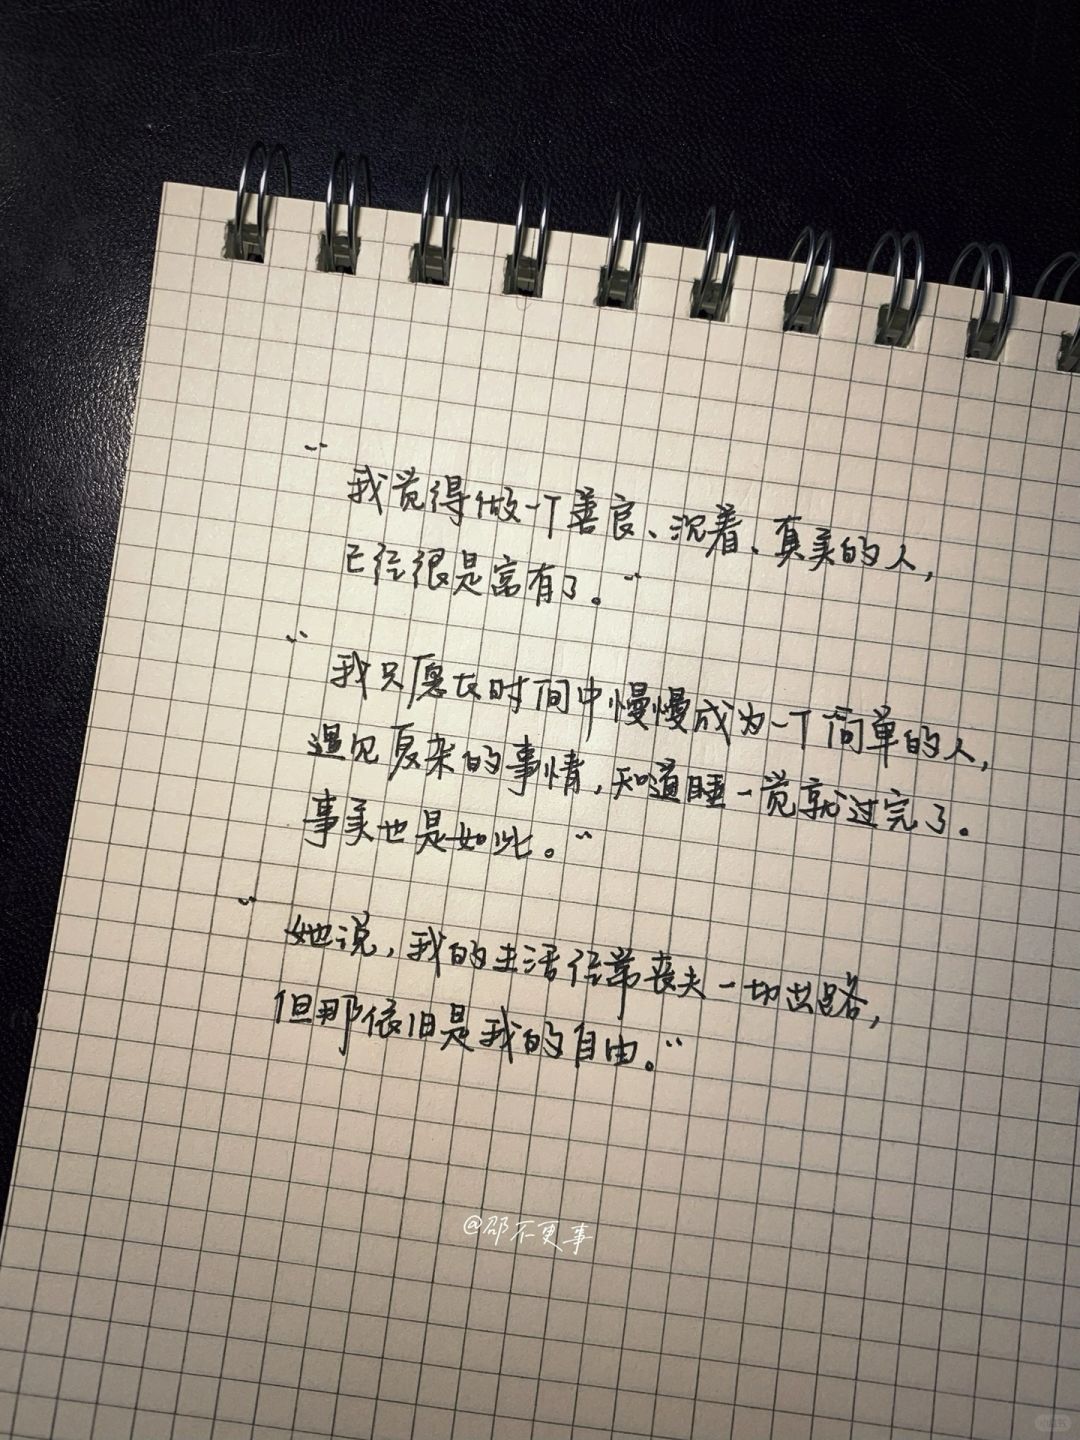 “我觉得做一个善良、沉着、真美的人，
已经很是富有了。”
“我只愿在时间中慢慢成为一个简单的人，
遇见复杂的事情，知道睡一觉就过完了。
事实也是如此。”
“她说，我的生活经常丧失一切出路，
但那依旧是我的自由。”
@邵不更事
小红书